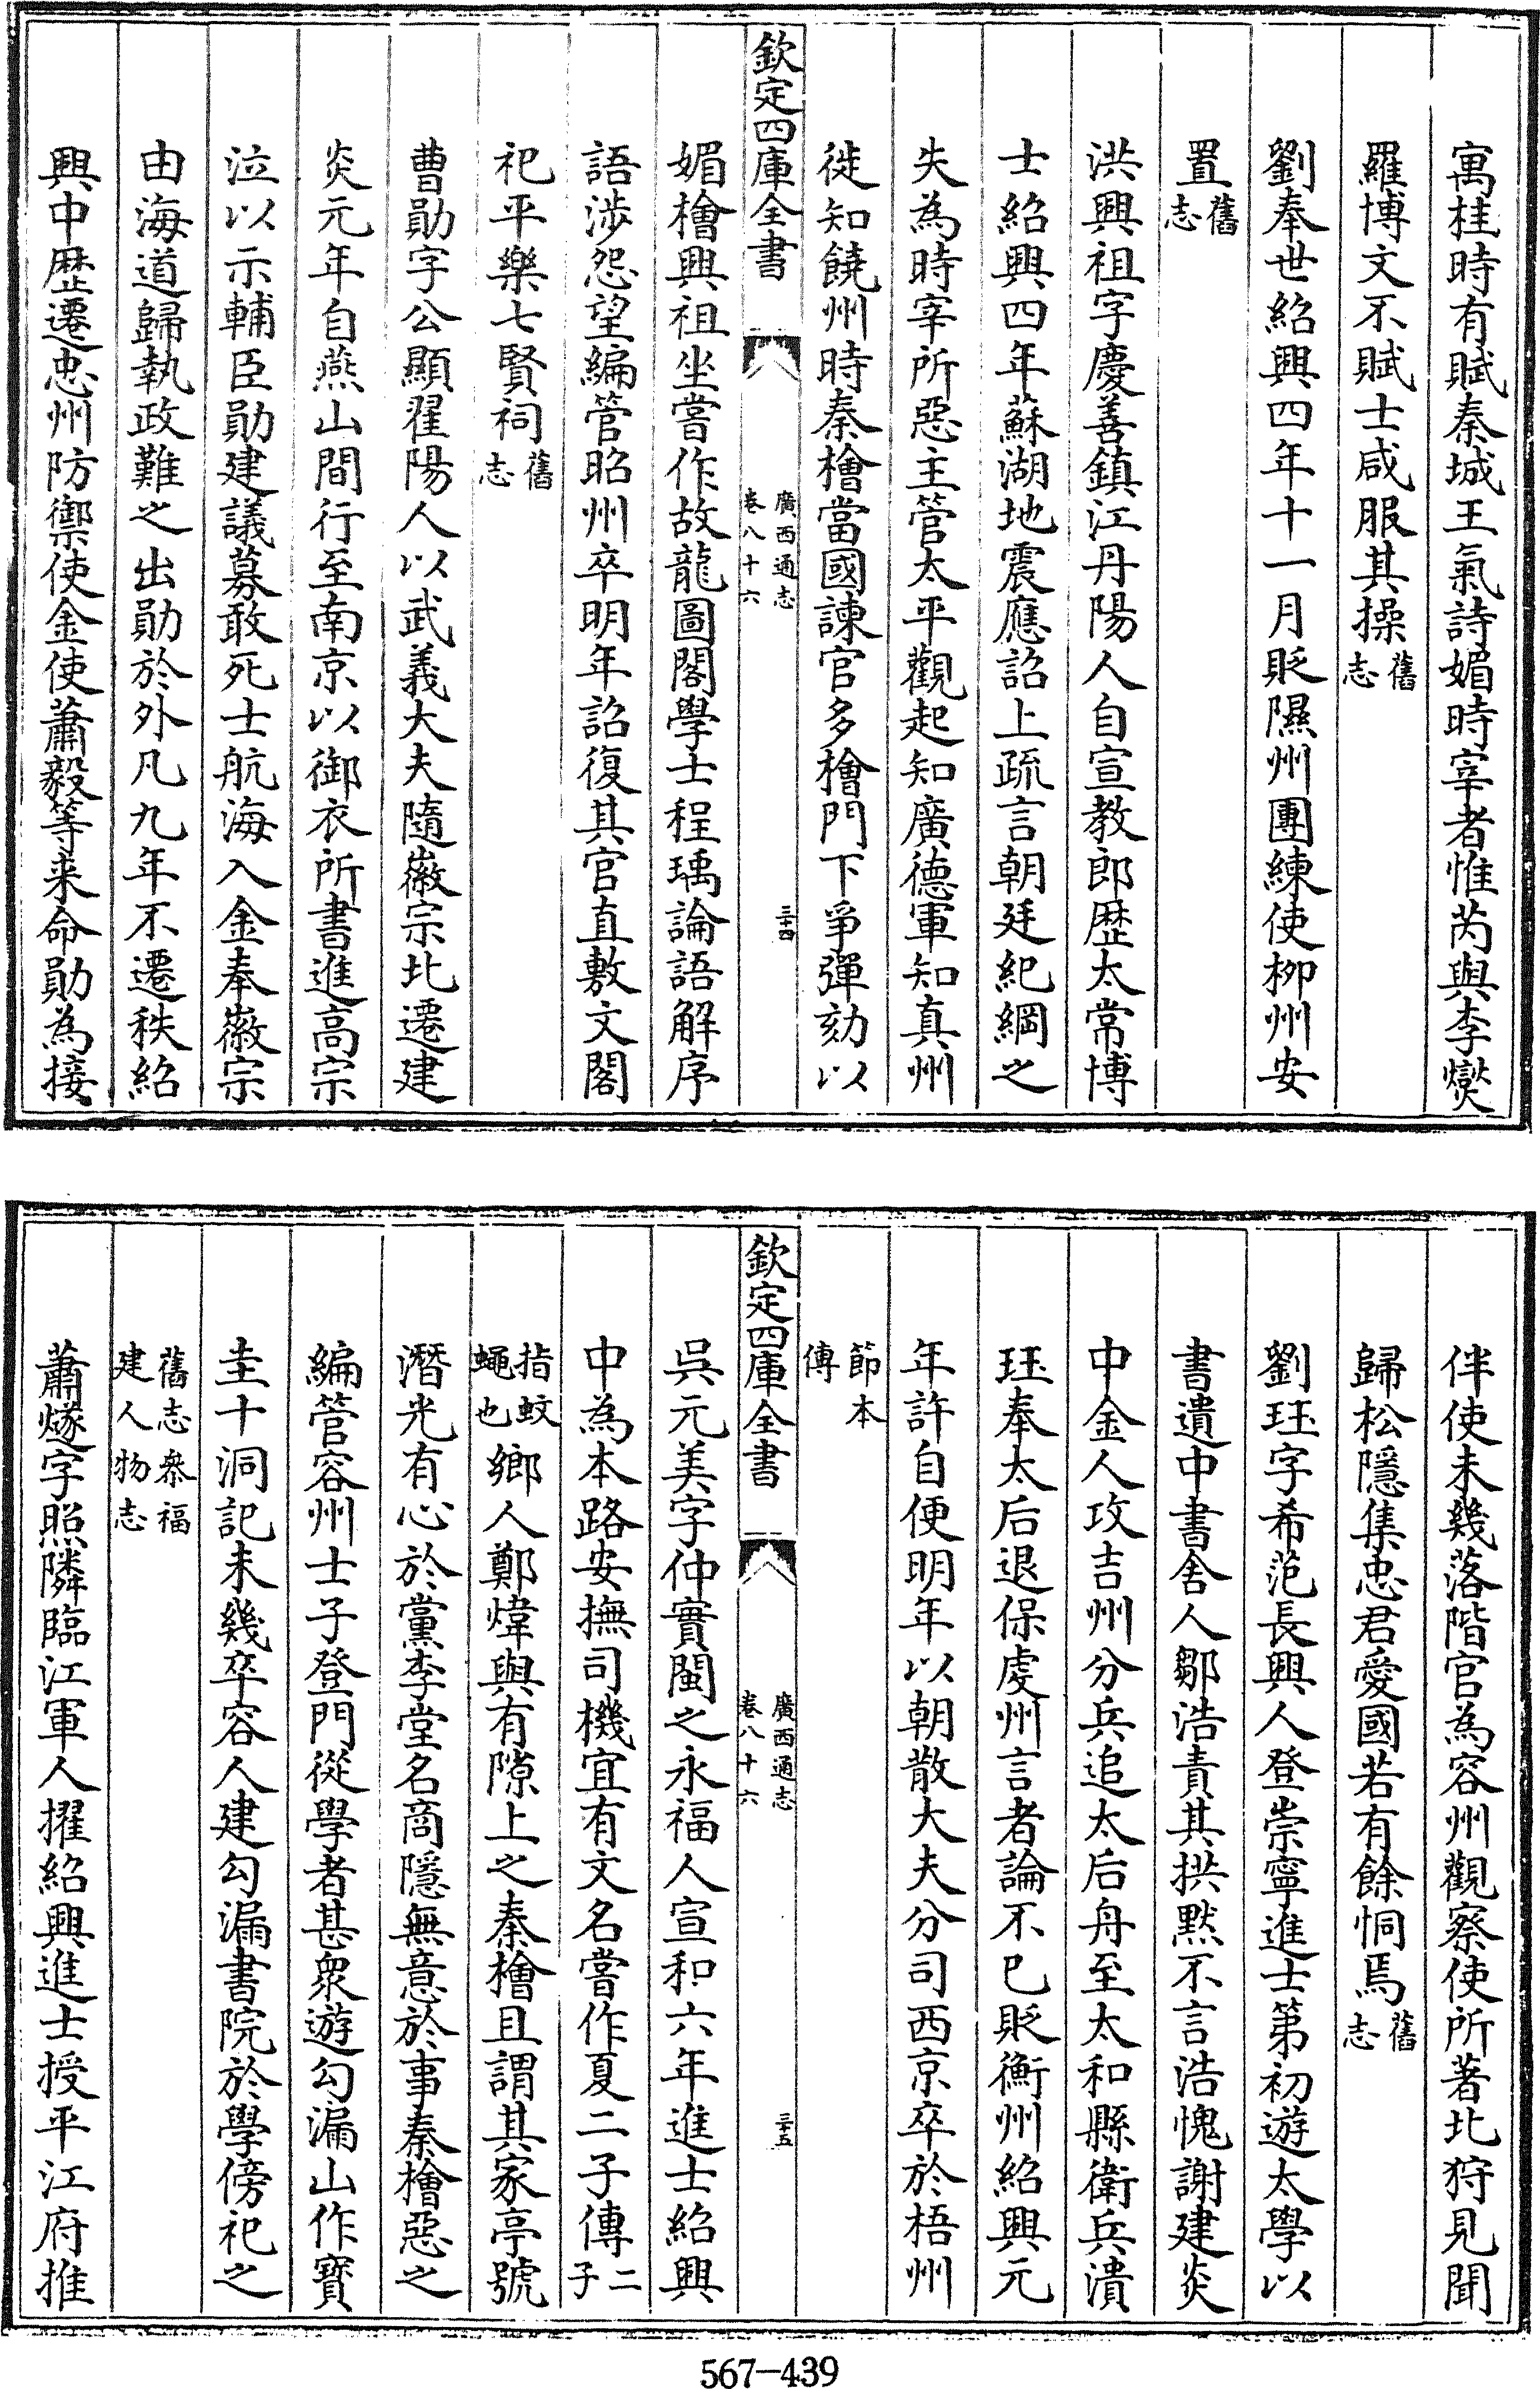 寓桂時有賦秦城王氣詩媚時宰者惟芮與李燮
羅博文不賦士咸服其操舊志
劉奉世紹興四年十一月貶隰州團練使柳州安
置舊志
洪興祖字慶善鎮江丹陽人自宣教郎歴太常博
士紹興四年蘇湖地震應詔上疏言朝廷紀綱之
失為時宰所惡主管太平觀起知廣德軍知真州
徙知饒州時秦檜當國諫官多檜門下爭彈劾以
欽定四庫全書 廣西通志卷八十六 三十四
媚檜興祖坐嘗作故龍圖閣學士程瑀論語解序
語涉怨望編管昭州卒明年詔復其官直敷文閣
祀平樂七賢祠舊志
曹勛字公顯翟陽人以武義大夫隨徽宗北遷建
炎元年自燕山間行至南京以御衣所書進高宗
泣以示輔臣勛建議募敢死士航海入金奉徽宗
由海道歸執政難之出勛於外凡九年不遷秩紹
興中歴遷忠州防禦使金使蕭毅等来命勛為接
伴使未幾落階官為容州觀察使所著北狩見聞
歸松隱集忠君愛國若有餘恫焉舊志
劉珏字希范長興人登崇寧進士第初遊太學以
書遺中書舍人鄒浩責其拱默不言浩愧謝建炎
中金人攻吉州分兵追太后舟至太和縣衛兵潰
珏奉太后退保虔州言者論不已貶衡州紹興元
年許自便明年以朝散大夫分司西京卒於梧州
節本傳
欽定四庫全書 廣西通志卷八十六 三十五
吳元美字仲實閩之永福人宣和六年進士紹興
中為本路安撫司機宜有文名嘗作夏二子傳二子
指蚊蠅也鄉人鄭煒與有隙上之秦檜且謂其家亭號
潛光有心於黨李堂名商隱無意於事秦檜惡之
編管容州士子登門從學者甚衆遊勾漏山作寳
圭十洞記未幾卒容人建勾漏書院於學傍祀之
舊志叅福建人物志
蕭燧字照隣臨江軍人擢紹興進士授平江府推
567-439